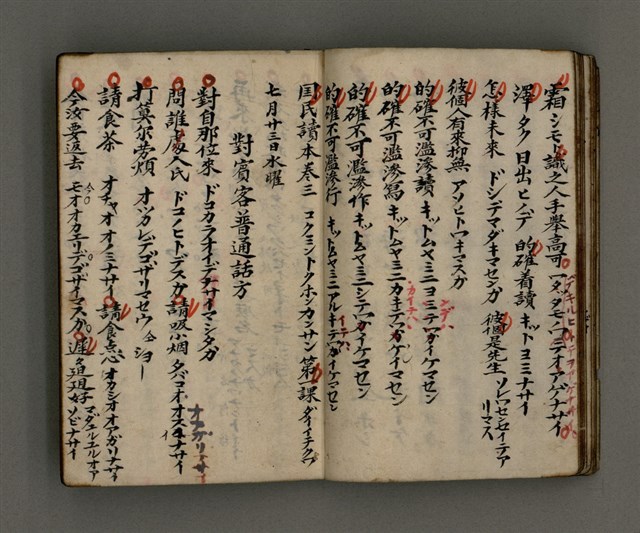 霜 シモト 識之人手舉高可
澤 タク 日出 ヒノデ 的確着讀 キットヨミナサイ
怎樣未來 ドシデマダキマセンカ 彼個是先生
彼個人有來抑無 アソヒトワキマスカ
的確不可濫滲讀 キットムヤミニヨミテワイケマセン
的確不可濫滲寫 キットムヤミニカキテワイケマセン
的確不可濫滲作 キットムヤミニシテワイケマセン
的確不可濫滲行 キットムヤミニアルキテワイケマセン
国民讀本卷三 コクミントクホンカンサン 第一課 ダイイチクワ
七月廿三日水曜
對賓客普通話方
對自那位來 ドコカラオイデナサイマシタカ
問誰處人氏 ドコノヒトデスカ 請吸小烟 タバコオオスイナサイ
打莫尔勞煩 オツカレデゴザリマセウ
請食茶 オチャオオノミナサイ 請食点心 オカシオオアガリナサイ
今汝要返去 モオオカエリデゴザイマスカ